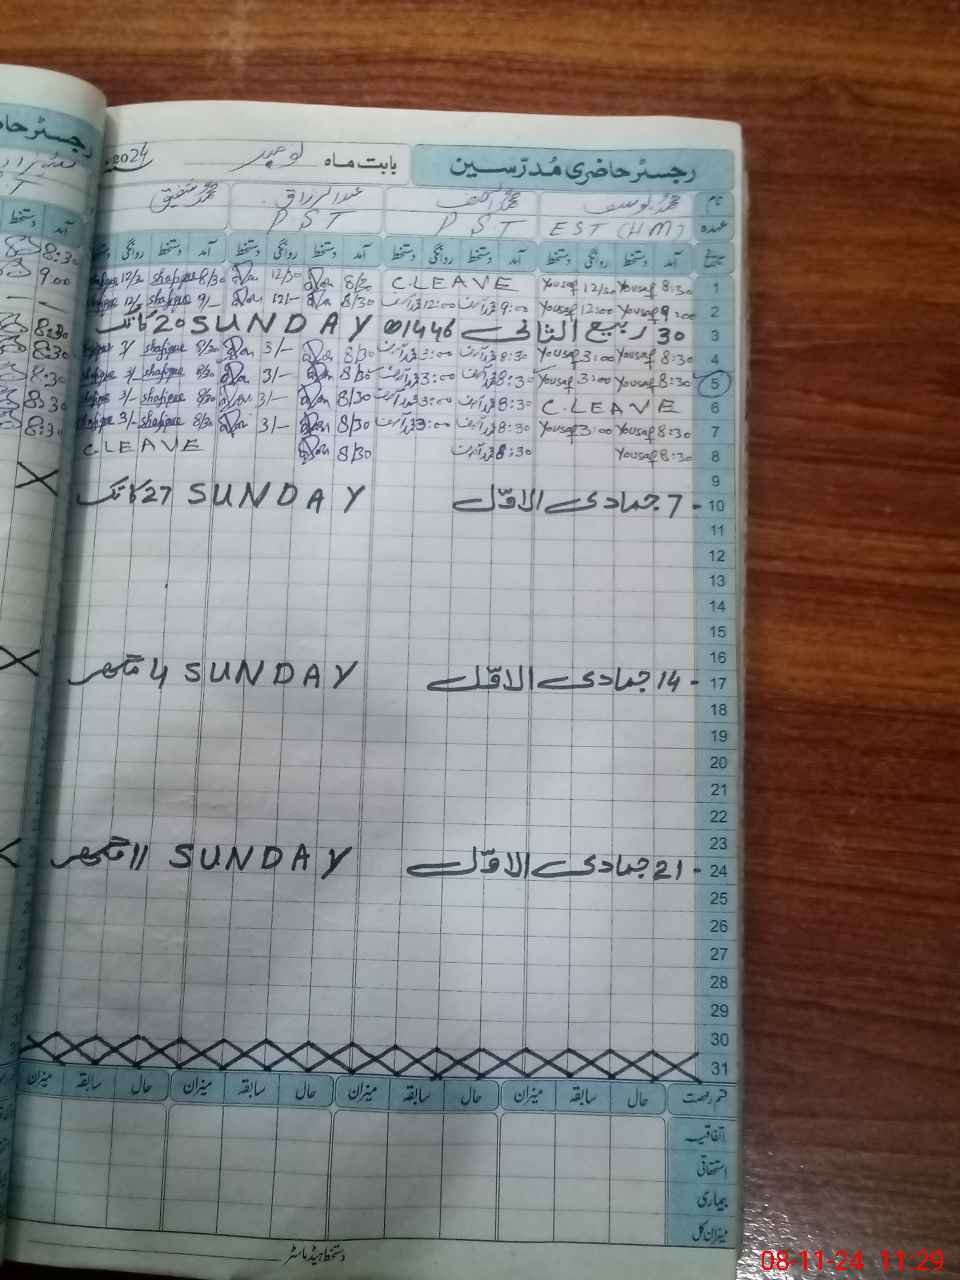 رجسٹر حاضری مُدرّسین بابت ماہ نومبر 2024
نام محمد یوسف محمد آصف عبدالرزاق محمد شفیق
عہدہ EST (HM) PST PST
تاریخ آمد دستخط روانگی دستخط آمد دستخط روانگی دستخط آمد دستخط روانگی دستخط آمد دستخط روانگی دستخط
1 8:30 Yousaf 12/30 Yousaf C.LEAVE 8/30 12/30 8/30 shafique 12/30
2 9:00 Yousaf 12:00 Yousaf 9:00 12:00 8/30 12/- 9/- shafique 12/-
3 30 ربیع الثانی 1446ھ SUNDAY 20 کاتک
4 8:30 Yousaf 3:00 Yousaf 8:30 3:00 8/30 3/- 8/30 shafique 3/-
5 8:30 Yousaf 3:00 Yousaf 8:30 3:00 8/30 3/- 8/30 shafique 3/-
6 C.LEAVE 8:30 3:00 8/30 3/- 8/30 shafique 3/-
7 8:30 Yousaf 3:00 Yousaf 8:30 3:00 8/30 3/- 8/30 shafique 3/-
8 8:30 Yousaf 8:30 8/30 C.LEAVE
9
10 - 7 جمادی الاوّل SUNDAY 27 کاتک
11
12
13
14
15
16
17 - 14 جمادی الاوّل SUNDAY 4 مگھر
18
19
20
21
22
23
24 - 21 جمادی الاوّل SUNDAY 11 مگھر
25
26
27
28
29
30
31
قسم رخصت حال سابقہ میزان حال سابقہ میزان حال سابقہ میزان حال سابقہ میزان
اتفاقیہ
استحقاقی
بیماری
میزان کل
دستخط ہیڈ ماسٹر
رجسٹر
آمد دستخط
8:30
9:00
8:30
8:30
8:30
8:30
8:30
08-11-24 11:29